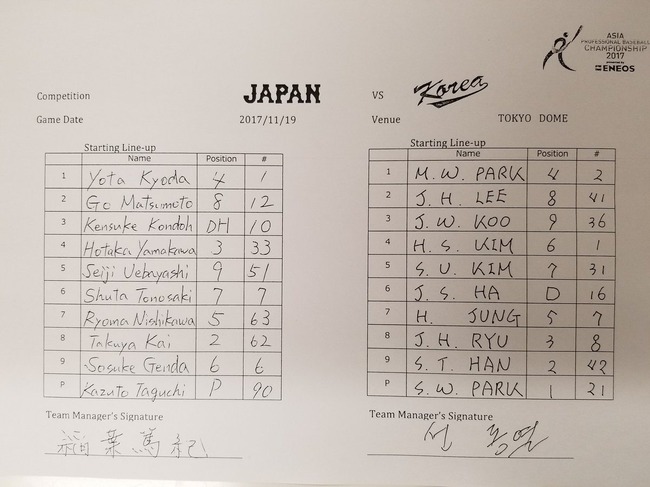 ASIA
PROFESSIONAL BASEBALL
CHAMPIONSHIP
2017
ENEOS
Competition JAPAN VS Korea
Game Date 2017/11/19 Venue TOKYO DOME
Starting Line-up
Name Position #
1 Yota Kyoda 4 1
2 Go Matsumoto 8 12
3 Kensuke Kondoh DH 10
4 Hotaka Yamakawa 3 33
5 Seiji Uebayashi 9 51
6 Shuta Tonosaki 7 7
7 Ryoma Nishikawa 5 63
8 Takuya Kai 2 62
9 Sosuke Genda 6 6
P Kazuto Taguchi P 90
Team Manager's Signature
稲葉篤紀
Starting Line-up
Name Position #
1 M. W. PARK 4 2
2 J. H. LEE 8 41
3 J. W. KOO 9 36
4 H. S. KIM 6 1
5 S. U. KIM 7 31
6 J. S. HA D 16
7 H. JUNG 5 7
8 J. H. RYU 3 8
9 S. T. HAN 2 42
P S. W. PARK 1 21
Team Manager's Signature
선동열